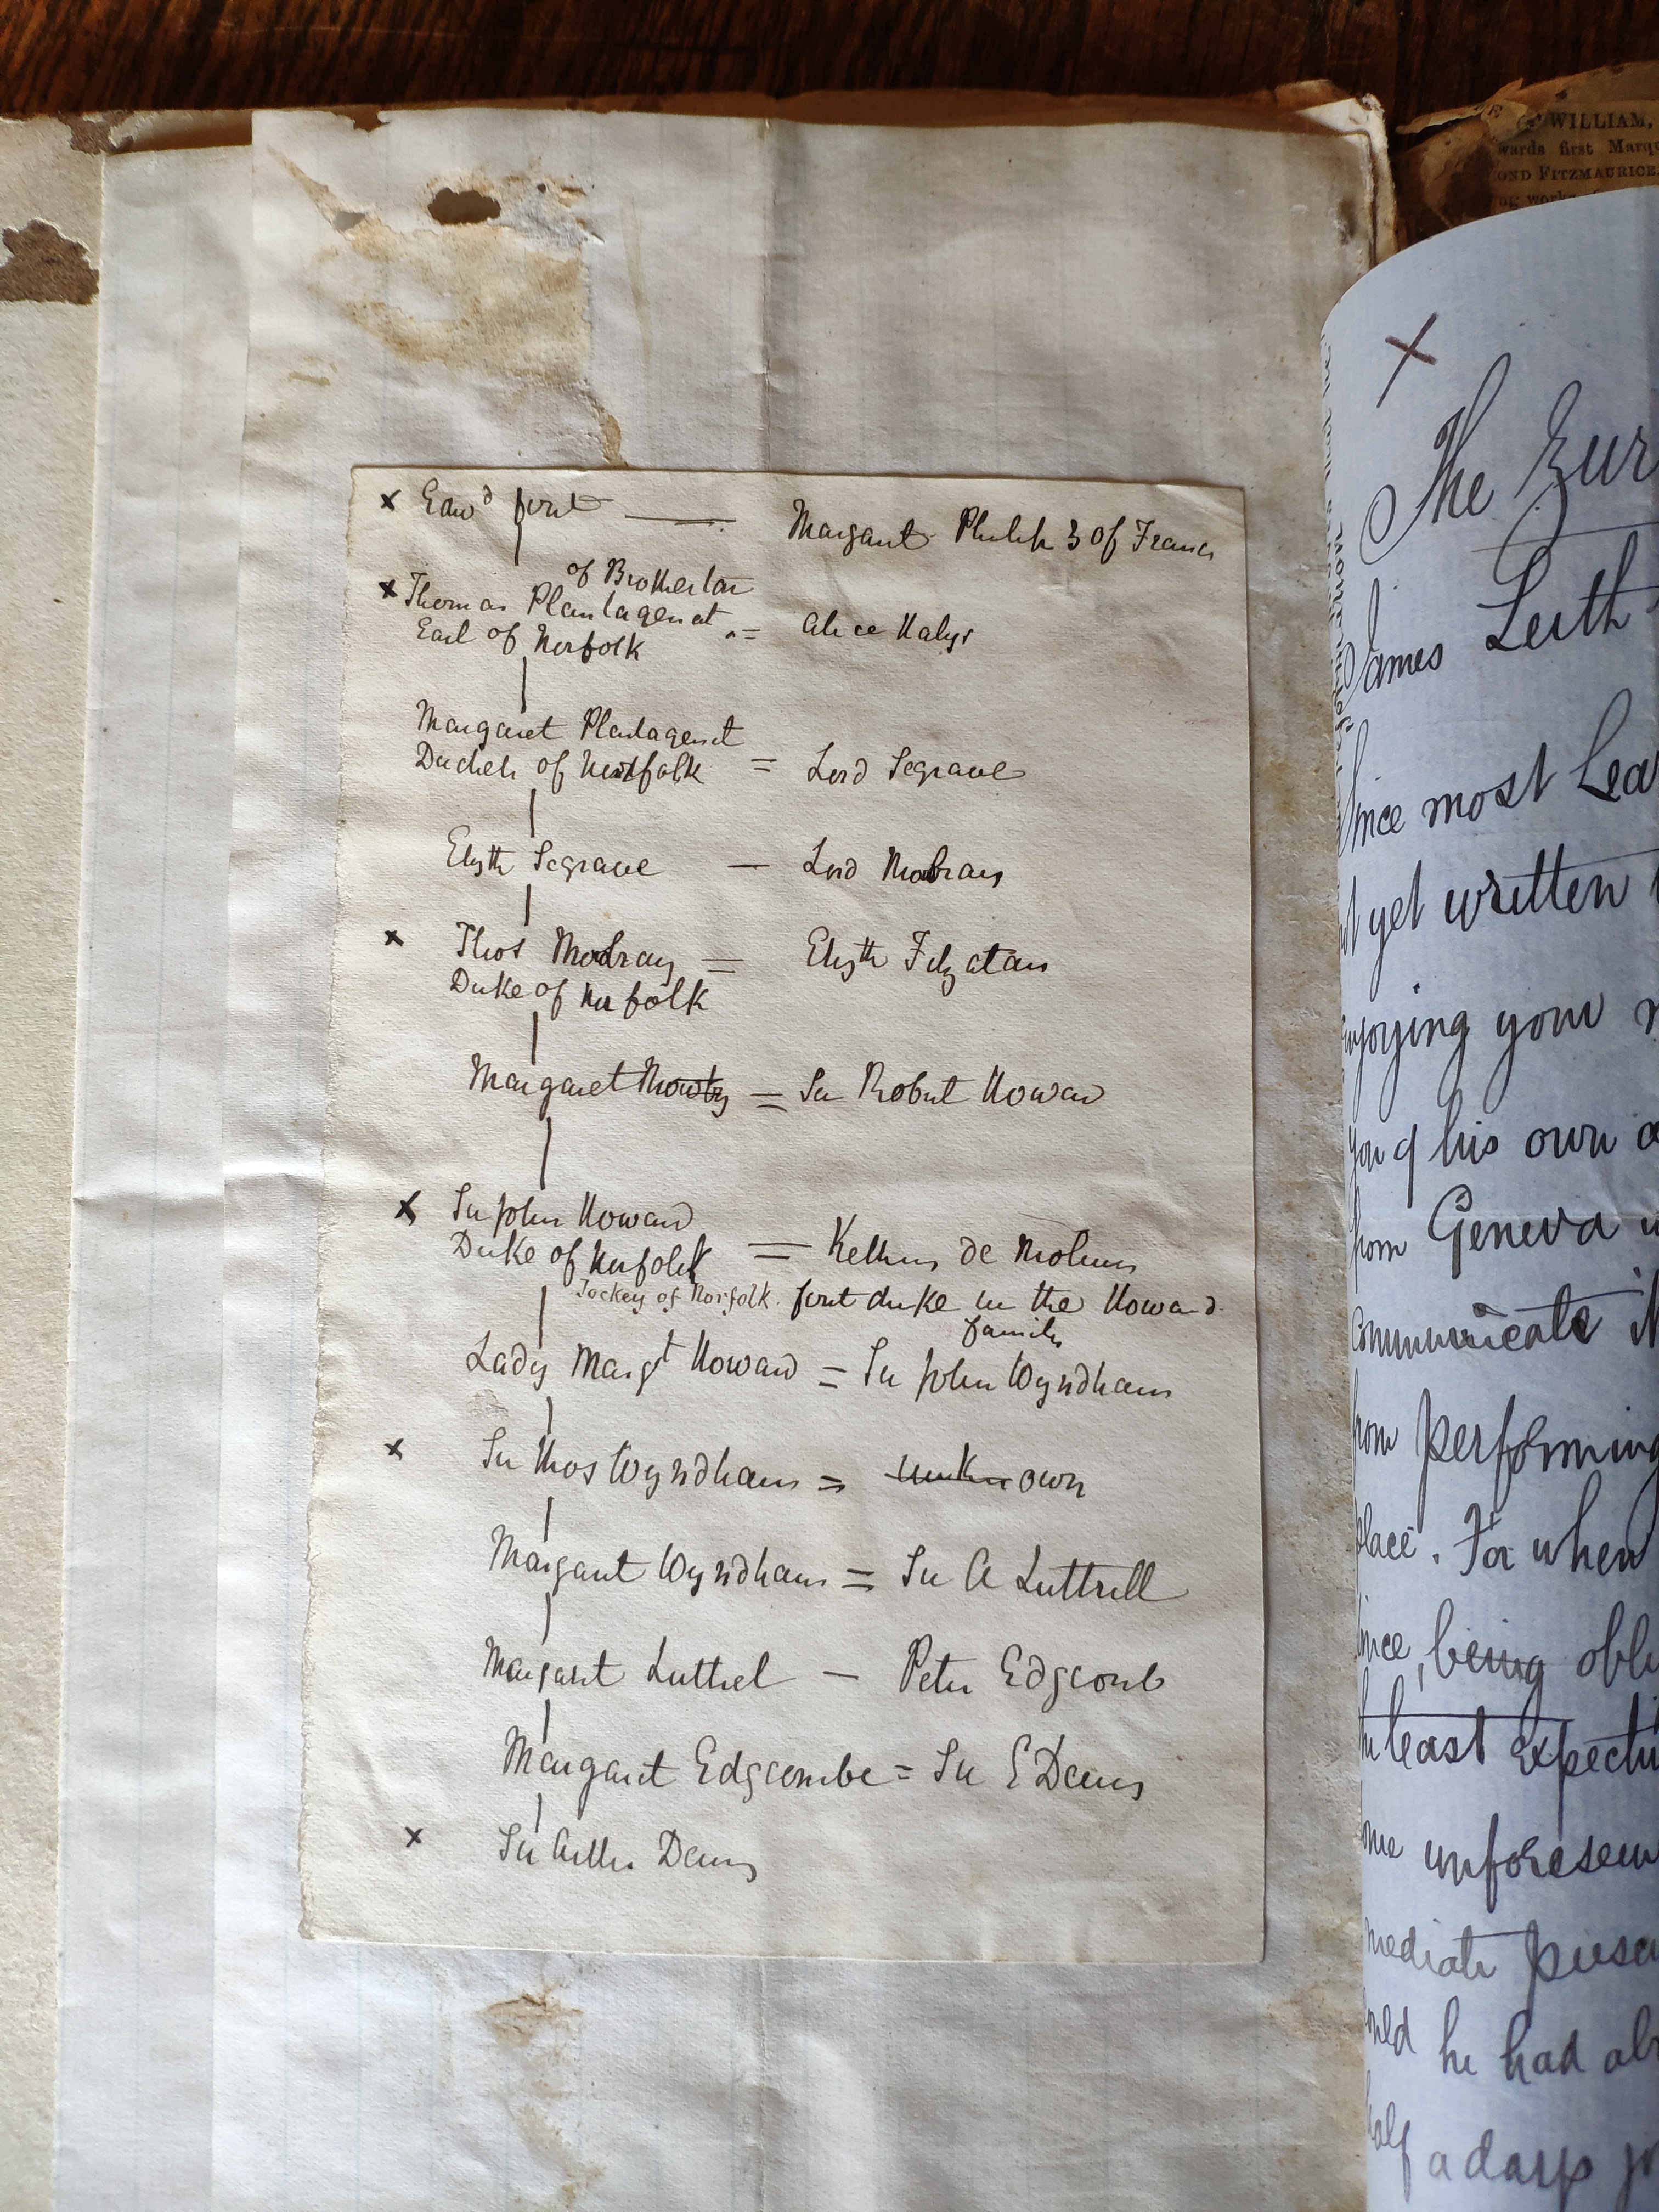 x Edwd first — Margaret Philip 3 of France
of Brotherton
x Thomas Plantagenet
Earl of Norfolk = Alice Halys
Margaret Plantagenet
Duchess of Norfolk = Lord Segrave
Elizth Segrave — Lord Mowbray
x Thos Mowbray = Elizth Fitzalan
Duke of Norfolk
Margaret Mowbray = Sir Robert Howard
x Sir John Howard
Duke of Norfolk = de Molines
Jockey of Norfolk. first duke in the Howard
family
Lady Margt Howard = Sir John Wyndham
x Sir Thos Wyndham = unknown
Margaret Wyndham = Sir A Luttrell
Margaret Luttrel — Peter Edgcomb
Margaret Edgcombe = Sir E Denny
x Sir Arthr Denny
WILLIAM,
wards first Marqu
OND FITZMAURICE
ng works
x
The
James Leith
ince most
t yet written
njoying your
you of his own
from Geneva
communicate it
from performing
place. For when
ince, being obli
he least expect
ome unforeseen
mediate
ould he had
half a days